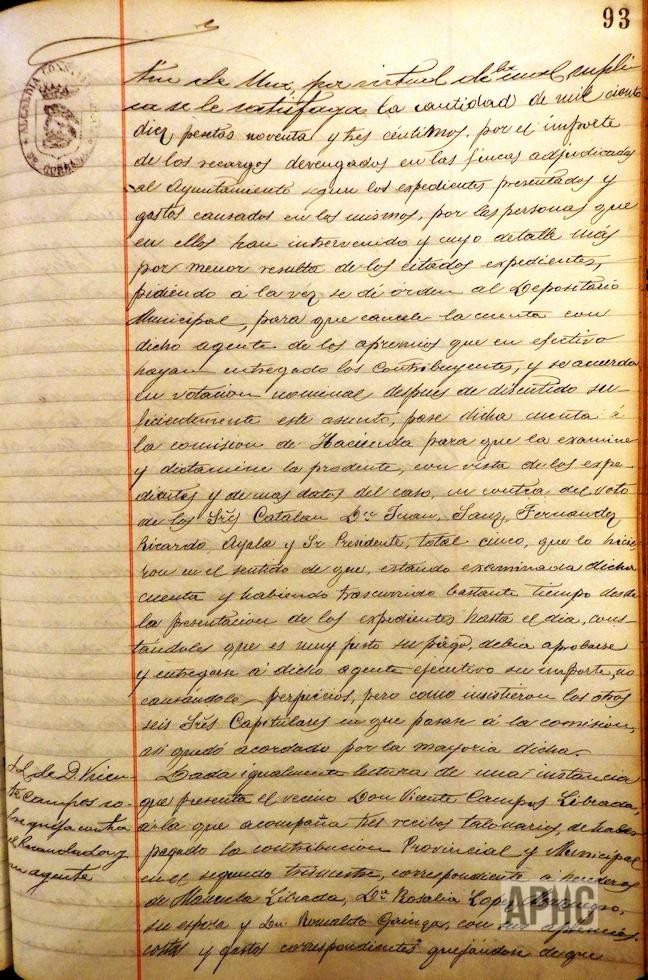 93
ALCALDIA CONSTIT
tin de Mur, por virtud de la cual supli-
ca se le satisfaga la cantidad de mil ciento
diez pesetas noventa y tres céntimos, por el importe
de los recargos devengados en las fincas adjudicadas
al Ayuntamiento segun los expedientes presentados y
gastos causados en los mismos, por las personas que
en ellos han intervenido y cuyo detalle más
por menor resulta de los citados expedientes,
pidiendo á la vez se dé órden al Depositario
Municipal, para que cancele la cuenta con
dicho agente de los apremios que en efectivo
hayan entregado los contribuyentes, y se acuerda
en votacion nominal despues de discutido su-
ficientemente este asunto, pase dicha cuenta á
la comision de Hacienda para que la examine
y dictamine lo prodente, con vista de los expe-
dientes y demas datos del caso, en contra del voto
de los Sres Catalan Dn Juan, Sanz, Fernandez
Ricardo Ayala y Sr Presidente, total cinco, que lo hicie-
ron en el sentido de que, estando examinada dicha
cuenta y habiendo trascurrido bastante tiempo desde
la presentacion de los expedientes hasta el dia, cons-
tándoles que es muy justo su pago, debia aprobarse
y entregarse á dicho agente ejecutivo su importe, no
causándole perjuicios, pero como insistieron los otros
seis Sres Capitulares en que pasase á la comision,
asi quedó acordado por la mayoria dicha.
Id. de D. Vicen-
te Campos so-
bre queja contra
el Recaudador y
su agente
Dada igualmente lectura de una instancia
que presenta el vecino Don Vicente Campos Librada,
á la que acompaña tres recibos talonarios, de haber
pagado la contribucion Provincial y Municipal
en el segundo trimestre, correspondiente a herederos
de Manuela Librada, Da Rosalia Lopez
su esposa y Dn Romualdo Quiroga, con sus apremios,
costas y gastos correspondientes quejándose de que
APHC